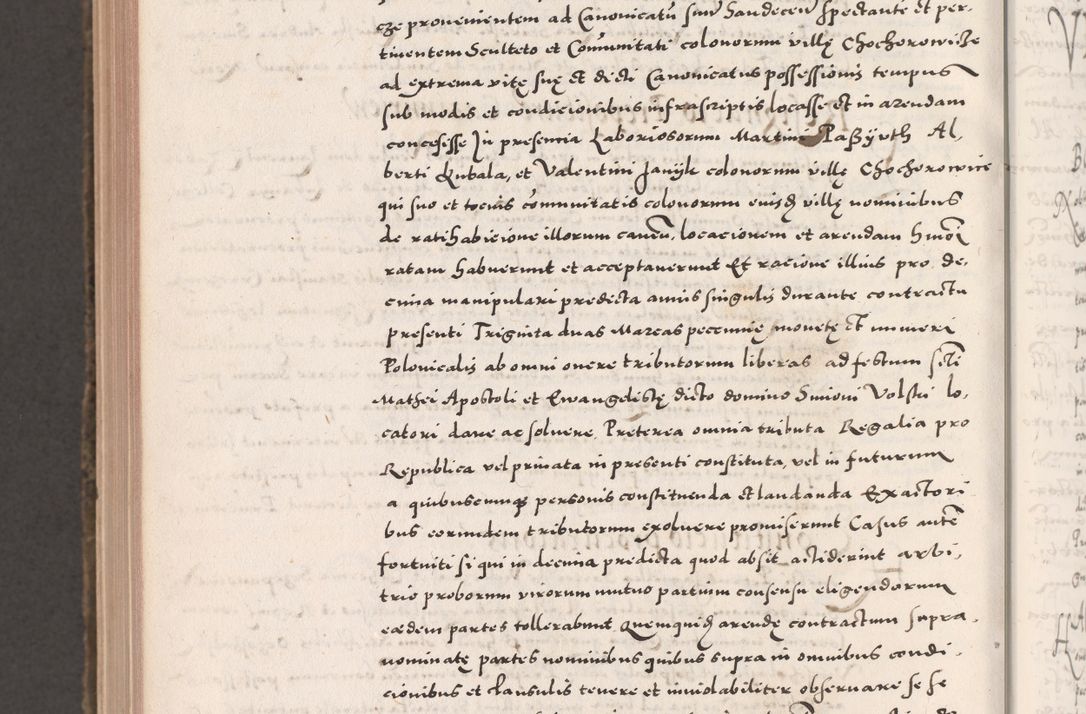 cze provenientem ad Canonicatũ suũ Sandeceñ spectante et per-
tinentem Sculteto et Com̃unitati colonorum villę Chochorowicze
ad extrema vitę suę et dicti Canonicatus possessionis tempus
sub modis et condicionibus infrascriptis locasse et in arendam
concesisse In presentia Laboriosorum Martini Paszyoth Al-
berti Kubala, et Valentini Janijk colonorum villę Chochorowice
qui suo et tocius com̃unitatis colonorum eiusd villę nominibus
de ratihabicione illorum caveñ, locacionem et arendam hmõi
ratam habuerunt et acceptaverunt Et racione illius pro de-
cima manipulari predicta annis singulis durante contractu
presenti Triginta duas Marcas pecunię monetę et numeri
Polonicalis ab omni onere tributorum liberas ad festum scti
Mathei Apostoli et Ewangelistę dicto domino Simoni Volski lo-
catori dare ac solvere. Preterea omnia tributa Regalia pro
Republica vel privata in presenti constituta, vel in futurum
a quibuscumque personis constituenda et laudanda Exactori
bus eorumdem tributorum exolvere promiserunt Casus autẽ
fortuiti si qui in decima predicta quod absit acciderint arbi-
trio proborum virorum mutuo partium consensu eligendorum
eædem partes tollerabunt Quemquid arendę contractum supra-
nominatę partes nominibus quibus supra in omnibus condi-
cionibus et clausulis tenere et inviolabiliter observare se se